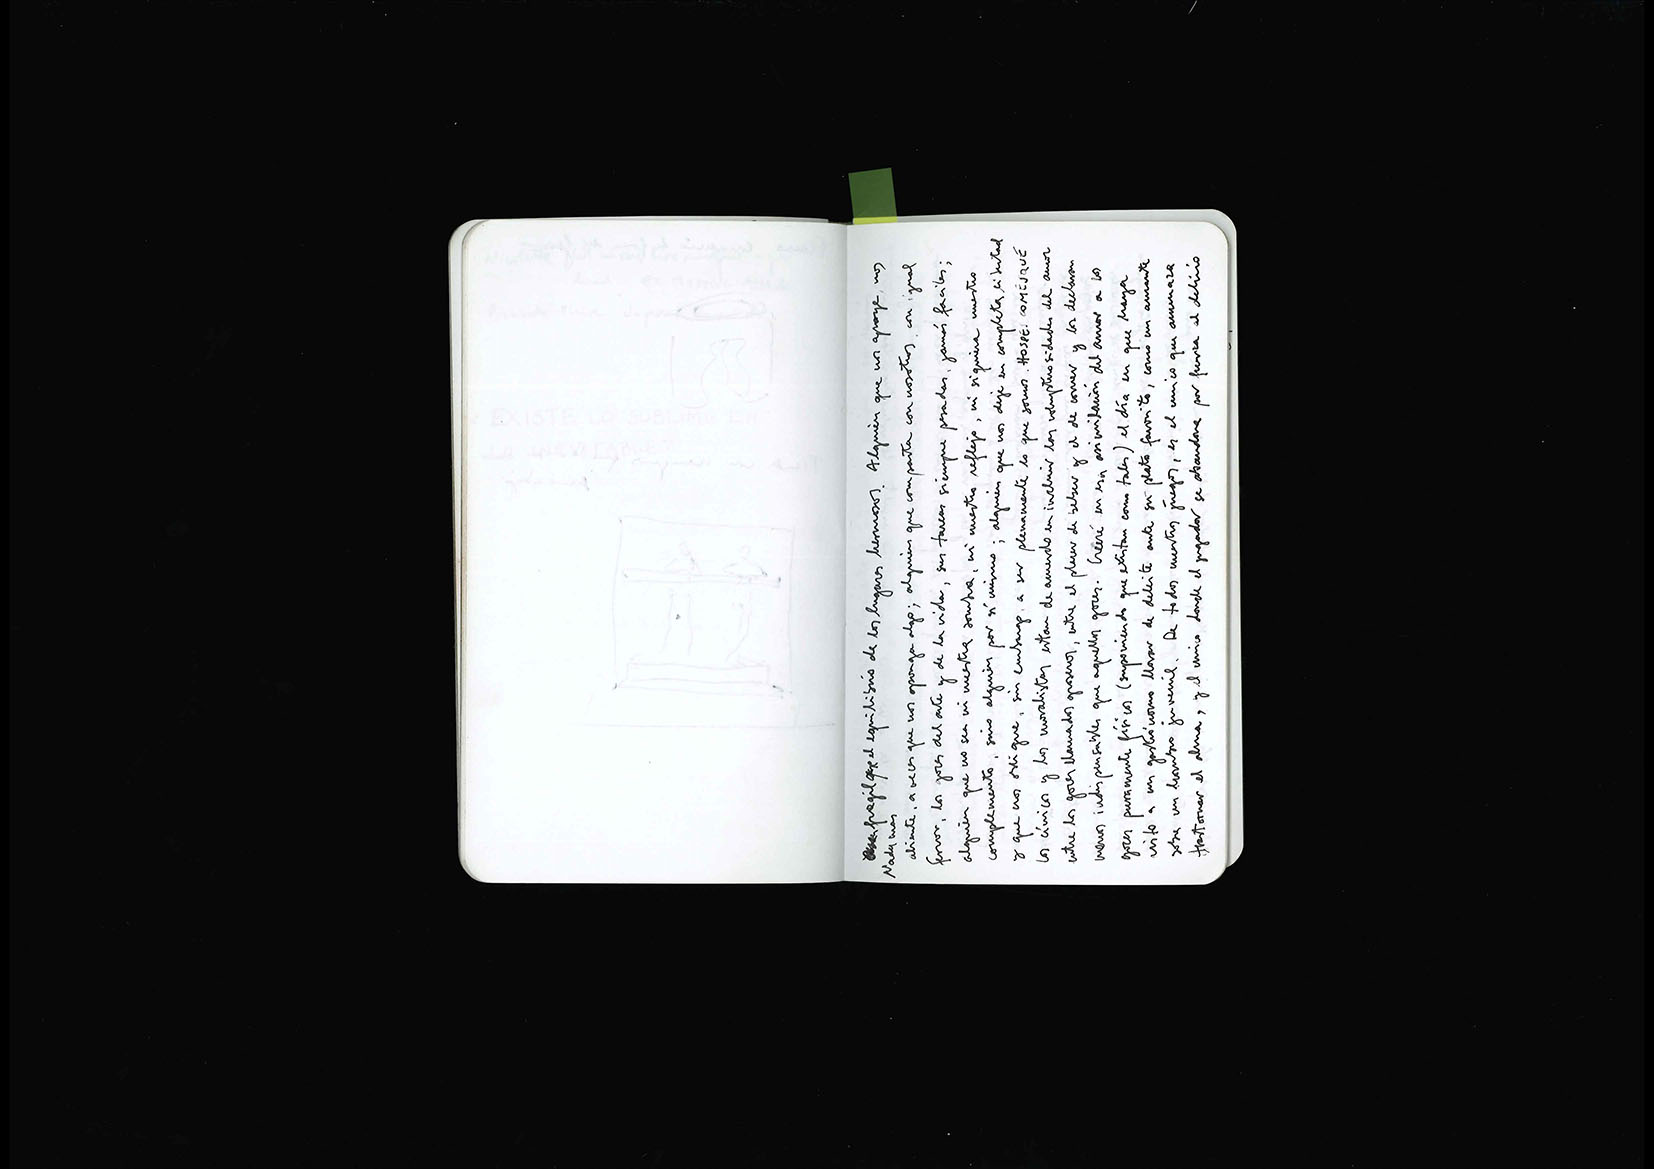 EXISTE LO SUBLIME EN
frágil es el equilibrio de los lugares hermosos. Alguien que nos apoye, nos
Nada más
aliente, a veces que nos oponga algo; alguien que comparta con nosotros, con igual
fervor, los goces del arte y de la vida, sus tareas siempre pesadas, jamás fáciles;
alguien que no sea ni nuestra sombra, ni nuestro reflejo, ni siquiera nuestro
complemento, sino alguien por sí mismo; alguien que nos deje en completa libertad
y que nos obligue, sin embargo, a ser plenamente lo que somos. HOSPES COMESQUE
Los cínicos y los moralistas están de acuerdo en incluir las voluptuosidades del amor
entre los goces llamados groseros, entre el placer de beber y el de comer y los declaran
menos indispensables que aquellos goces. Creeré en esa asimilación del amor a los
goces puramente físicos (suponiendo que existan como tales) el día en que haya
visto a un gastrónomo llorar de deleite ante su plato favorito, como un amante
sobre un hombro juvenil. De todos nuestros juegos, es el único que amenaza
trastornar el alma, y el único donde el jugador se abandona por fuerza al delirio